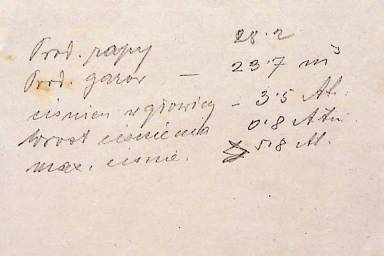 Prod. ropy 28.2
Prod. gazów — 23.7 m³
ciśnien w głowicy – 3.5 At.
wzrost ciśnienia 0.8 Atn.
max. ciśnie. 5.8 At.